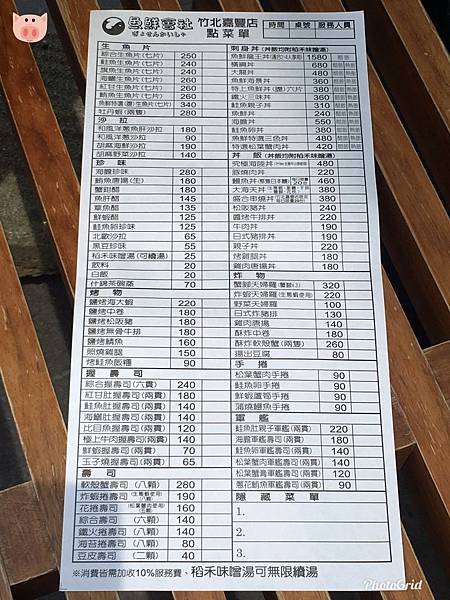 魚鮮會社 竹北嘉豐店
ぎょせんかいしゃ 點菜單
時間 桌號 服務人員
生魚片
綜合生魚片(七片) 250
鮭魚生魚片(七片) 240
旗魚生魚片(七片) 240
海鱺生魚片(七片) 260
紅甘生魚片(七片) 260
鮪魚生魚片(七片) 260
魚鮮特選(厚)生魚片(七片) 340
牡丹蝦(兩隻) 280
沙拉
和風洋蔥魚肝沙拉 180
和風洋蔥沙拉 90
胡麻海鮮沙拉 190
胡麻野菜沙拉 140
珍味
海膽珍味 280
鮪魚唐揚(生) 180
蟹鉗醋 145
魚肝醋 145
章魚醋 135
鮮蝦醋 125
鮭魚卵珍味 125
北歐沙拉 65
黑豆珍味 55
稻禾味噌湯(可續湯) 25
飲料 20
白飯 20
什錦茶碗蒸 70
烤物
鹽烤海大蝦 220
鹽烤中卷 180
鹽烤松阪豬 180
鹽烤無骨牛排 180
鹽烤鯖魚 160
照燒雞腿 150
烤鮭魚飯糰 90
握壽司
綜合握壽司(六貫) 240
紅甘肚握壽司(兩貫) 180
鮭魚肚握壽司(兩貫) 140
海鱺肚握壽司(兩貫) 140
比目魚握壽司(兩貫) 120
極上牛肉握壽司(兩貫) 140
鮮蝦握壽司(兩貫) 70
玉子燒握壽司(兩貫) 65
壽司
軟殼蟹壽司(八顆) 280
炸蝦捲壽司 190
花捲壽司 160
綜合壽司(六顆) 140
鐵火捲壽司(八顆) 140
海苔捲壽司(八顆) 80
豆皮壽司(二顆) 40
刺身丼(丼飯均附稻禾味噌湯)
1580
680
大腿丼 480
魚鮮海景丼 360
特上魚鮮丼(厚)六片 380
鐵火三味丼 360
鮭魚親子丼 310
魚鮮丼 240
海膽丼 550
鮭魚卵丼 380
魚鮮特選三色丼 420
特選松葉蟹肉丼 420
丼飯(丼飯均附稻禾味噌湯)
究極海陸丼 480
豚燒肉丼 220
鰻魚丼 460
大海天丼 380
盛合串燒丼 380
松阪豬丼 240
醬烤牛排丼 220
牛肉丼 190
日式豬排丼 190
親子丼 220
烤雞腿丼 180
雞肉唐揚丼 180
炸物
蟹腳天婦羅 320
炸蝦天婦羅 220
野菜天婦羅 100
日式炸豬排 130
雞肉唐揚 140
酥炸中卷 180
酥炸軟殼蟹(兩隻) 260
揚出豆腐 80
手捲
松葉蟹肉手捲 90
鮭魚卵手捲 90
鮮蝦蘆筍手捲 90
蒲燒鰻魚手捲 90
軍艦
鮭魚肚親子軍艦(兩貫) 220
海膽軍艦壽司(兩貫) 180
鮭魚卵軍艦壽司(兩貫) 140
松葉蟹肉軍艦壽司(兩貫) 140
松葉蟹膏軍艦壽司(兩貫) 120
蔥花鮪魚軍艦壽司(兩貫) 90
隱藏菜單
1.
2.
3.
※消費皆需加收10%服務費、稻禾味噌湯可無限續湯
PhotoGrid